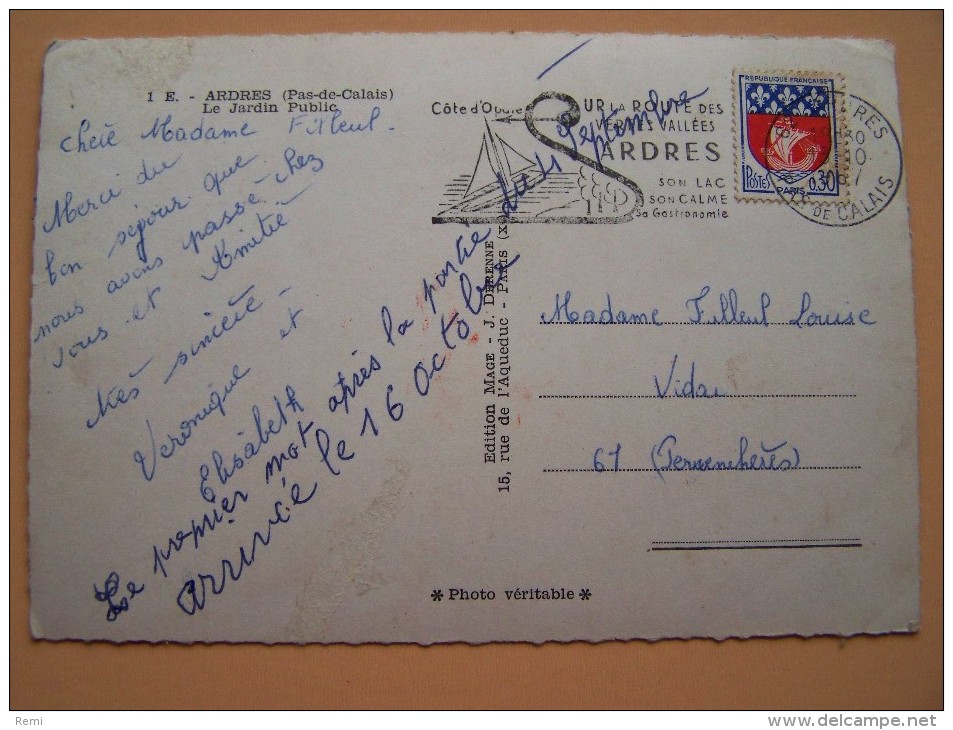 1 E. - ARDRES (Pas-de-Calais)
Le Jardin Public
Chère Madame Filleul.
Merci du
bon séjour que
nous avons passé chez
vous et Amitié
très sincère -
Veronique et
Elisabeth
Le premier mot après la partie du 4 septembre
arrivée le 16 octobre
Côte d'Opale
SUR LA ROUTE DES
VERTES VALLÉES
ARDRES
SON LAC
SON CALME
Sa Gastronomie
REPUBLIQUE FRANÇAISE
POSTES
0,30
PARIS
ARDRES
PAS DE CALAIS
15, rue de l'Aqueduc - PARIS
Edition MAGE - J. DERENNE
Madame Filleul Louise
Vidai
61 (Pervenchères)
* Photo véritable *
Remi
www.delcampe.net